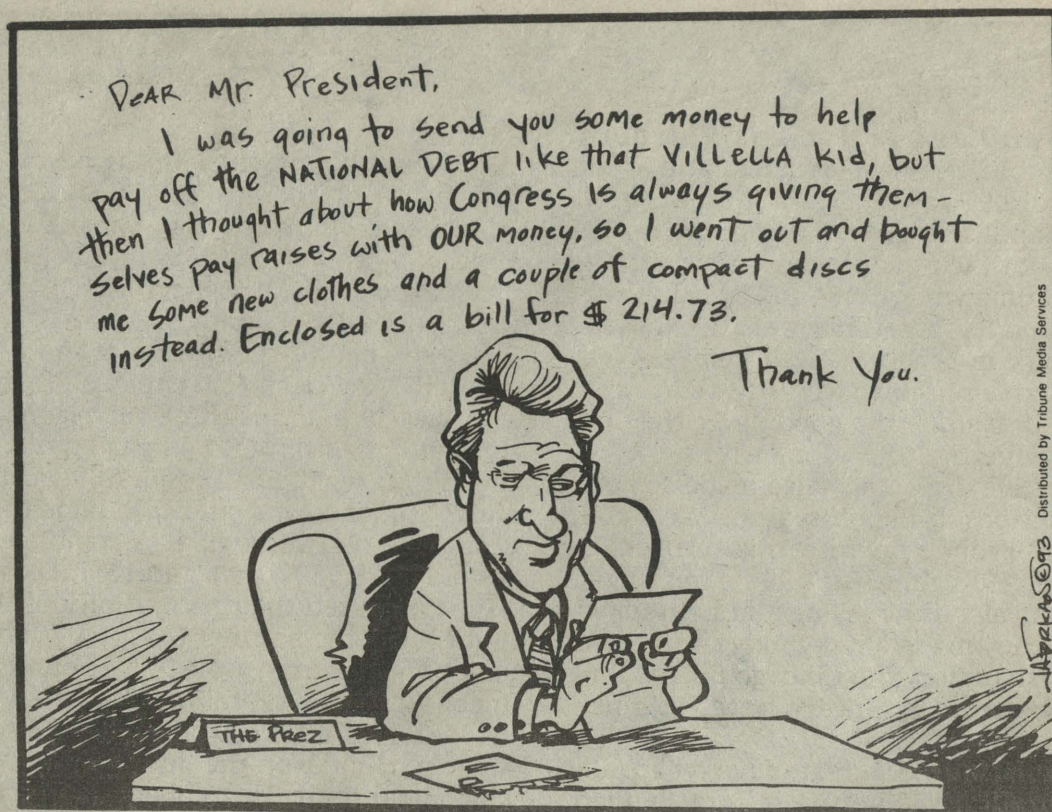 Dear Mr. President,
I was going to send you some money to help
pay off the NATIONAL DEBT like that VILLELLA kid, but
then I thought about how Congress is always giving them-
selves pay raises with OUR money, so I went out and bought
me some new clothes and a couple of compact discs
instead. Enclosed is a bill for $ 214.73.
Thank You.
THE PREZ
©93 Distributed by Tribune Media Services